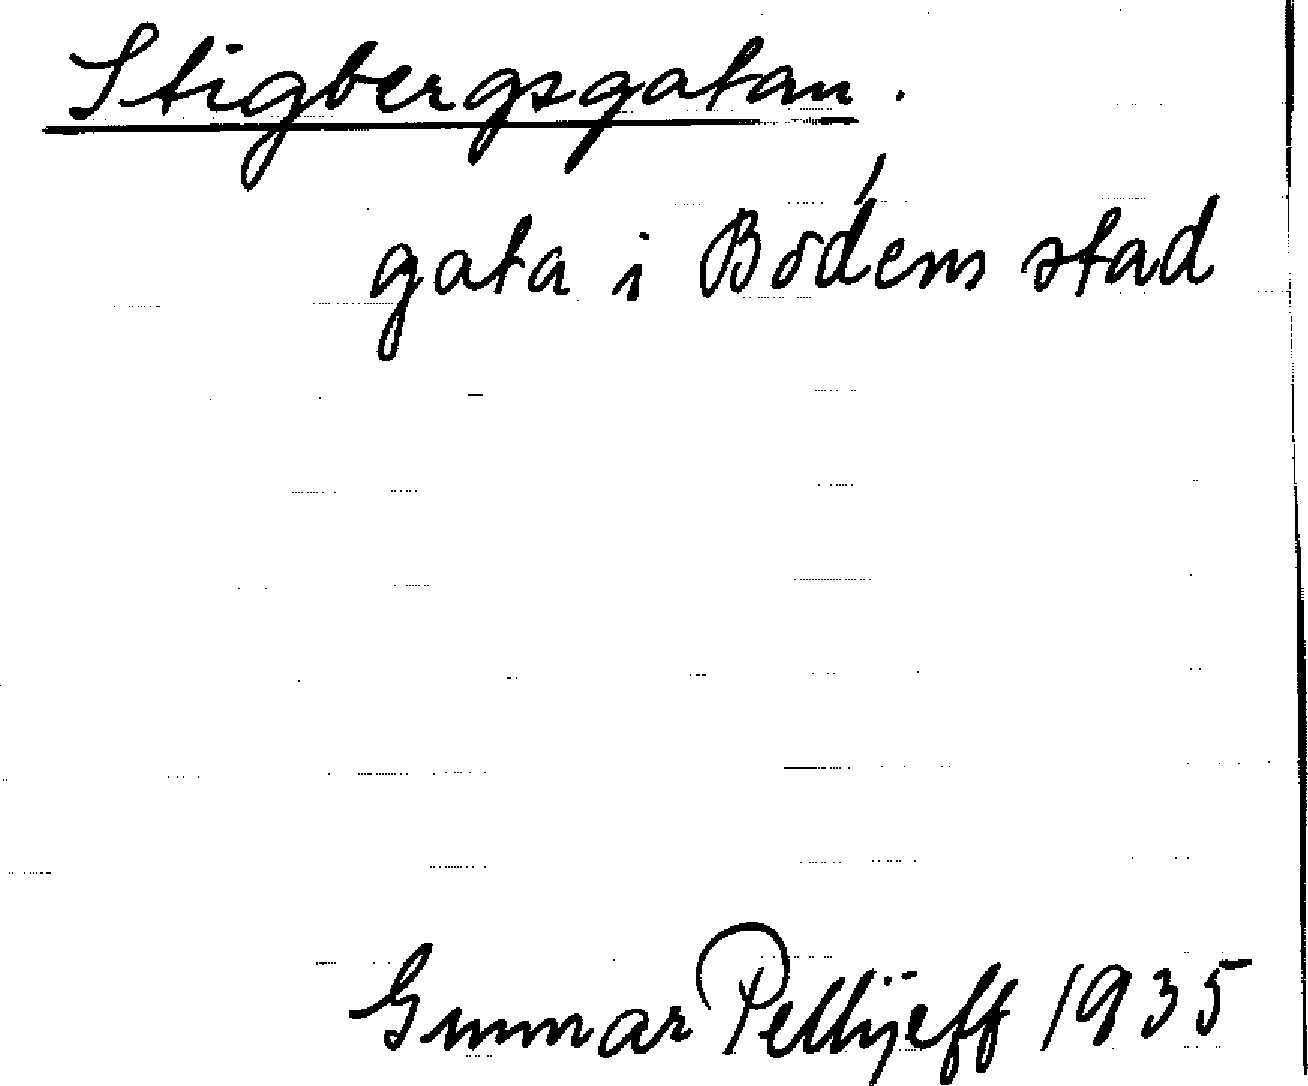 Stigbergsgatan.
gata i Bodens stad
Gunnar Pellijeff 1935